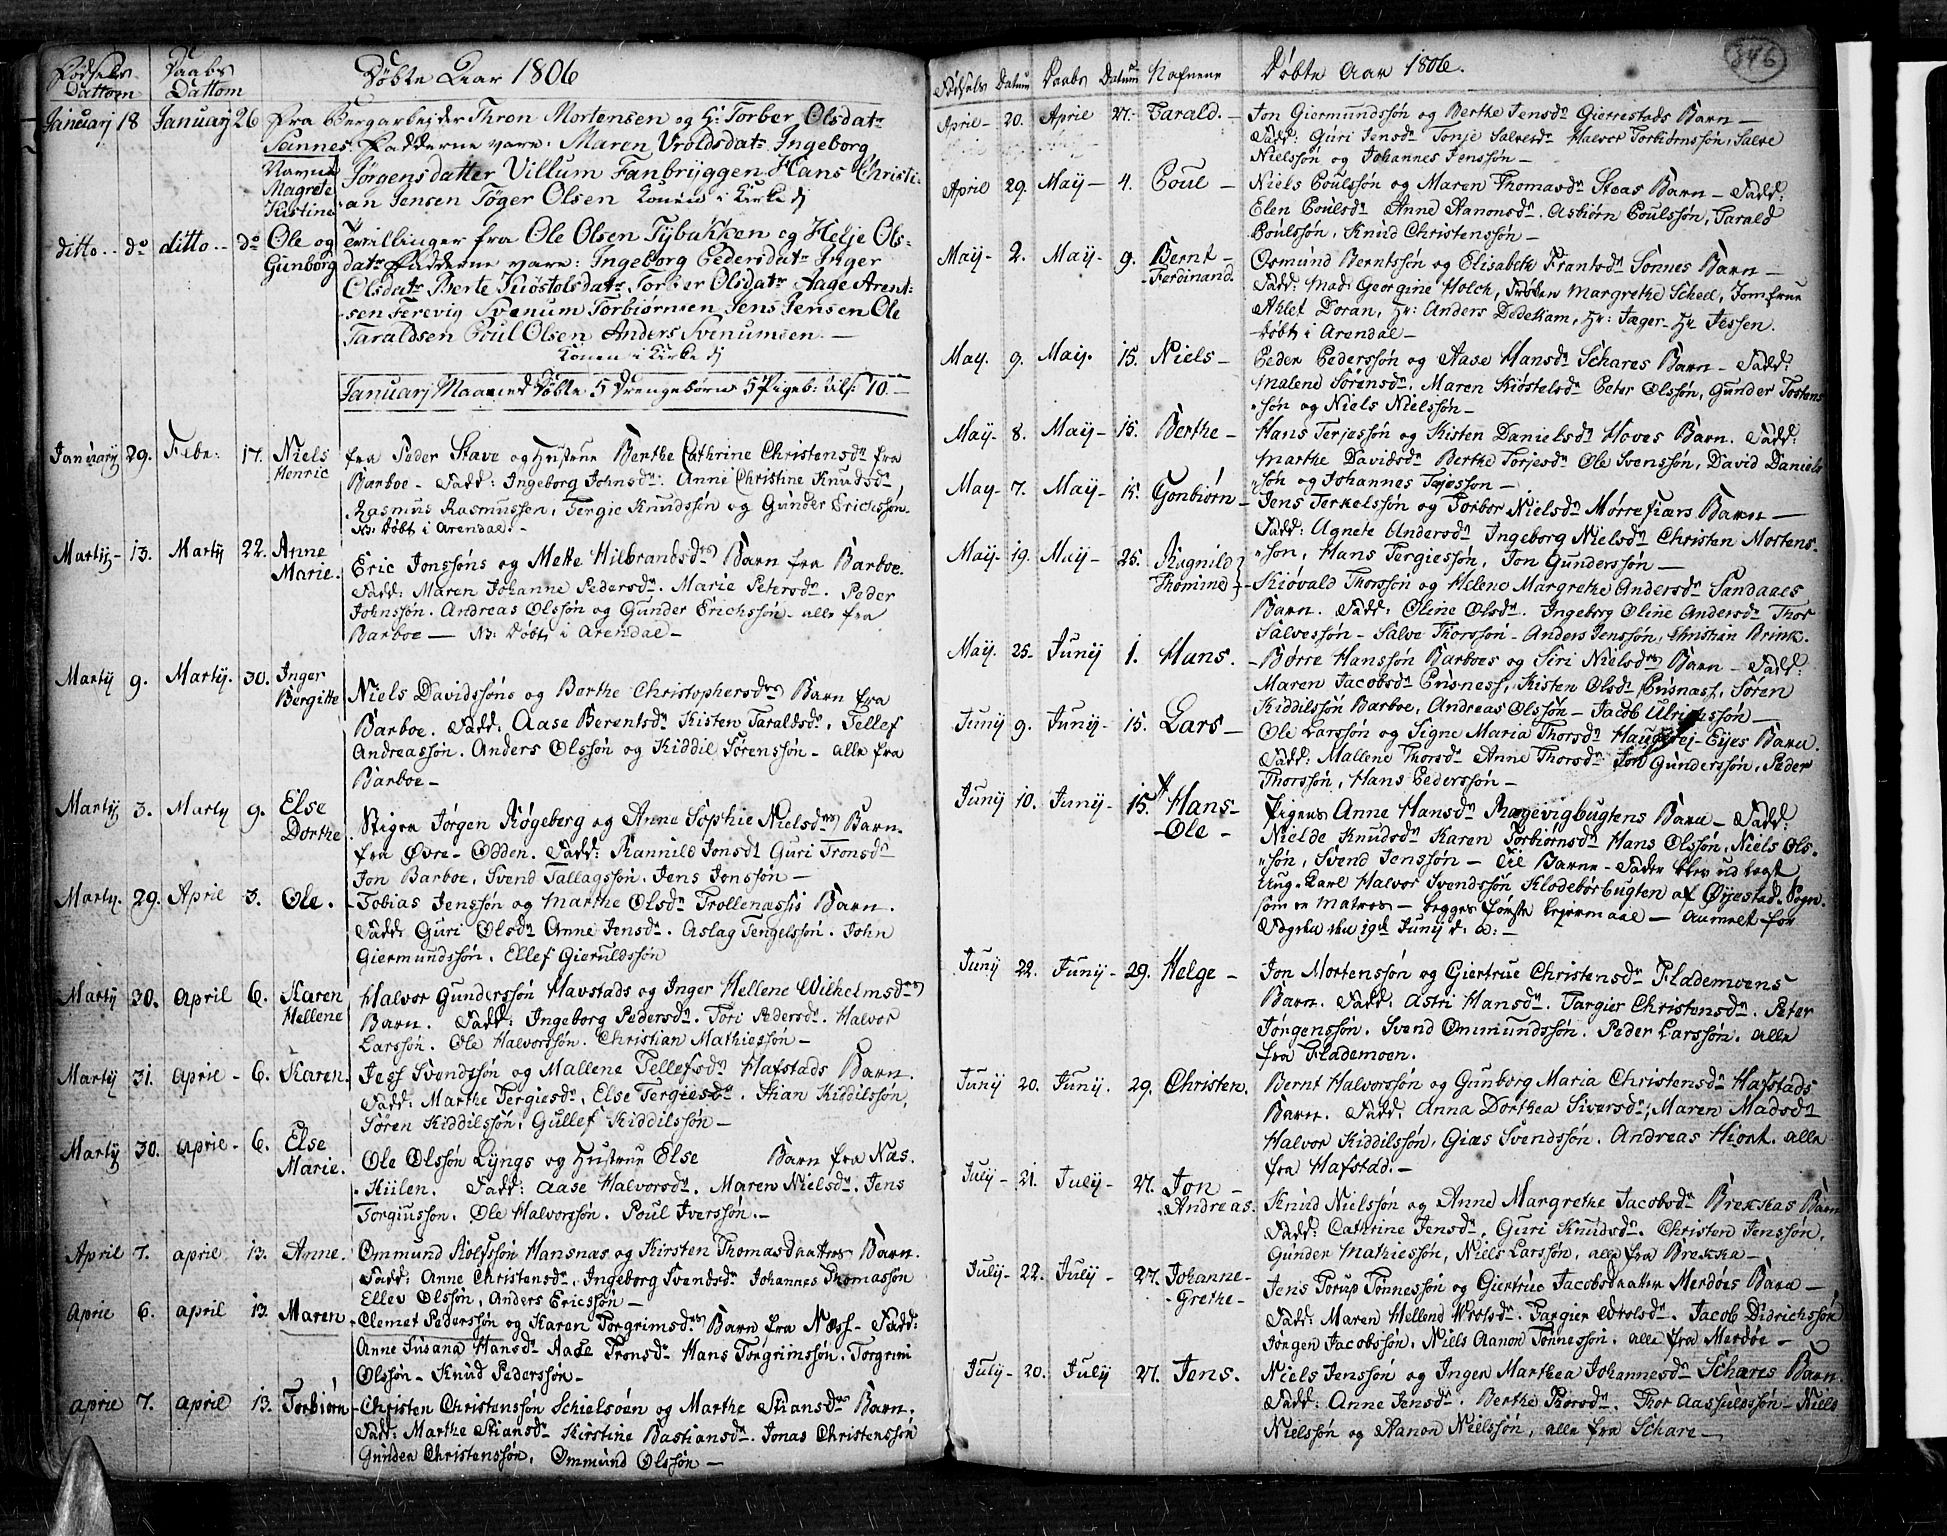 Fødsels Daabs Døbte Aar 1806
Dattom Dattom
Januarj 18 January 26 fra Bergarbejder Thron Mortensen og H: Torber Olsdatr
Sannes Fadderne vare: Maren Vroldsdatr Ingeborg
Navnet
Magrete Jørgensdatter Villum Fanbryggen Hans Christi-
Kistine an Jensen Tøger Olsen Konen i Kirke dj
ditto.. do ditto.. do Ole og Tvillinger fra Ole Olsen Tybakken og Helje Ols-
Gunborg datr Fadderne vare: Ingeborg Pedersdatr Inger
Olsdatr Berte Kiøstolsdatr Torber Olsdatr Aage Arent-
sen Ferevig Svenum Torbiørnsen Jens Jensen Ole
Taraldsen Poul Olsen Anders Svenumsen.—
Konen i Kirke dj
Januarj Maaned Døbte 5 Drengebørn 5 Pigeb: tils: 10.—
January 29. Febr: 17. Niels fra Peder Stave og Hustrue Berthe Cathrine Christensdn fra
Henric Barboe — Fadd: Ingeborg Johnsdn: Anne Christine Knudsdn,
Rasmus Rasmussen, Tergie Knudssøn og Gunder Erichssøn.
NB: Døbt i Arendal.—
Martij— 13. Martij 22. Anne
Marie. Eric Jonssøns og Mette Hilbrandsdn Barn fra Barboe.
Fadd: Maren Johanne Pedersdn. Marie Petersdn. Peder
Johnssøn. Andreas Olssøn og Gunder Erichssøn — alle fra
Barboe — NB: Døbt i Arendal—
Martij 9. Martij. 30. Inger
Bergitte Niels Davidssøns og Berthe Christophersdn Barn fra
Barboe. Fadd: Aase Berentsdn Kisten Taraldsdn, Tellef
Andreassøn. Anders Olssøn og Kiddil Sørenssøn — alle fra
Barboe—
Martij 3. Martij 9. Else
Dorthe. Stiger Jørgen Røgeberg og Anne Sophie Nielsdn Barn.
fra Øvre-Odden. Fadd: Rannild Jonsdn Guri Tronsdn
Jon Barboe, Svend Tallagssøn. Jens Jonssøn—
Martij. 29. April 3. Ole. Tobias Jenssøn og Marthe Olsdn Trollenæssis Barn.
Fadd: Guri Olsdn Anne Jensdn. Aslag Tengelssøn. John
Giermundssøn. Ellef Gieruldssøn
Martij 30. April 6. Karen Halvor Gunderssøn Havstads og Inger Hellene Wilhelmsdn
Hellene Barn. Fadd: Ingeborg Pedersdn. Tori Pedersdn. Halvor
Larssøn. Ole Halvorssøn. Christian Mathiessøn—
Martij 31. April— 6. Karen. Jess Svendssøn og Mallene Tellefsdn Hafstads Barn.
Fadd: Marthe Tergiesdn, Else Tergiesdn. Stian Kiddilssøn,
Søren Kiddilssøn, Gullef Kiddilssøn—
Martij 30. April— 6. Else Ole Olssøn Lyngs og Hustrue Else Barn fra Næs.
Marie. Kiilen. Fadd: Aase Halvorsdn. Maren Nielsdn. Jens
Torgiussøn. Ole Halvorssøn. Poul Iverssøn.—
April 7. April 13. Anne. Ommund Rolfssøn Hansnæs og Kirsten Thomasdaatrs Barn.
Fadd: Anne Christensdn, Ingeborg Svendsdn Johannes Thomassøn
Ellev Olssøn, Anders Ericssøn—
April 6. April 13. Maren Clemet Pederssøn og Karen Torgrimsdn Barn fra Næss— Fadd:
Anne Susana Hansdn Aase Tronsdn Hans Torgrimssøn. Torgrim
Olssøn— Knud Pederssøn—
April 7. April 13. Torbiørn Christen Christenssøn Schielsøen og Marthe Stiansdn Barn.
Fadd: Marthe Stiansdn Kirstine Bastiansdn. Jonas Christenssøn
Gunder Christenssøn, Ommund Olssøn—
346
Fødsels Datum Daabs Datum Nafnene Døbte Aar 1806.
April— 20. April 27. Tarald.— Jon Giermundssøn og Berthe Jensdn Gierrestads Barn—
Fadd: Guri Jensdn Tonje Salvesdn Halvor Torbiørnssøn, Salve
Nielssøn og Johannes Jenssøn—
April 29. May— 4. Poul— Niels Poulssøn og Maren Thomasdn Stoas Barn— Fadd:
Elen Poulsdn Anne Aanonsdn. Asbiørn Poulssøn, Tarald
Poulssøn, Knud Christenssøn—
May— 2. May— 9. Bernt— Ormund Berntssøn og Elisabeth Frantsdn Sonnes Barn—
Ferdinand. Fadd: Mad: Georgine Holck, Frøken Margrethe Scheel, Jomfrue
Ahlet Doran, Hr: Anders Dedekam, Hr: Jæger— Hr Jessen.
Døbt i Arendal—
May. 9. May. 15. Niels— Peder Pederssøn og Aase Hansdn Schares Barn— Fadd:
Malene Sørensdn. Maren Kiøstelsdn Peter Olssøn, Gunder Tostens
søn og Niels Nielssøn—
May— 8. May— 15. Berthe— Hans Terjessøn og Kisten Danielsdn Hoves Barn. Fadd:
Marthe Davidsdn Berthe Torjesdn Ole Svenssøn, David Daniels
søn og Johannes Tøjessøn—
May— 7. May— 15. Gonbiørn— Jens Terkelssøn og Torbor Nielsdn Mørrefiærs Barn—
Fadd: Agnete Andersdn Ingeborg Nielsdn Christen Mortens-
søn, Hans Tergiessøn, Jon Gunderssøn—
May— 19. May— 25. Ragnild
Thomine Kiøvald Thorssøn og Helene Margrethe Andersdn Sandaaes
Barn. Fadd: Oline Olsdn. Ingeborg Oline Andersdn Thor
Salvessøn— Salve Thorssøn— Anders Jenssøn, Christian Brink.
May. 25. Junij 1. Hans. Børre Hanssøn Barboes og Siri Nielsdn Barn— Fadd:
Maren Jacobsdn Prisness, Kisten Olsdn Prisness, Søren
Kiddilssøn Barboe, Andreas Olssøn— Jacob Ulrichssøn—
Junij 9. Junij— 15. Lars— Ole Larssøn og Signe Maria Thorsdn Haugerej-Eijes Barn.
Fadd: Mallene Thorsdn Anne Thorsdn Jon Gunderssøn, Peder
Thorssøn, Hans Pederssøn—
Junij 10. Junij— 15. Hans— Pigens Anne Hansdn Rægevigbugtens Barn— Fadd:
Ole— Nielde Knudsdn Karen Torbiørnsdn Hans Olssøn, Niels Ols-
søn, Svend Jenssøn— Til Barne-Fader blev udlagt
Ung-Karl Halvor Svendssøn Klodebørbugten af Øijestad-Sogn.
som er Matros— begges første Lejermaal— anmelt for
Fogden den 19d Junij d: a:—
Junij 22. Junij— 29. Helge— Jon Mortenssøn og Giertrue Christensdn Flademoens
Barn. Fadd: Astri Hansdn. Targier Christensdn. Peter
Jørgenssøn. Svend Ommundssøn. Peder Larssøn. alle
fra Flademoen.
Junij 20. Junij. 29. Christen. Bernt Halvorssøn og Gunborg Maria Christensdn Hafstads
Barn. Fadd. Anna Dorthea Siversdn, Maren Madsdn
Halvor Kiddilssøn, Giæs Svendssøn. Andreas Hiort. alle
fra Hafstad.—
July— 21. July— 27. Jon— Knud Nielssøn og Anne Margrethe Jacobsdn Brekkas Barn
Andreas. Fadd: Cathrine Jensdn, Guri Knudsdn. Christen Jenssøn,
Gunder Mathiessøn, Niels Larssøn, alle fra Brekka—
July— 22. July— 27. Johanne— Jens Torup Tønnessøn og Giertrue Jacobsdaater Merdøes Barn—
Grethe— Fadd: Maren Hellend Wrolsdn. Targier Wrolsdn. Jacob Didrichssøn
Jørgen Jacobssøn, Niels Aanon Tønnessøn. alle fra Merdøe—
July— 20. July 27. Jens. Niels Jenssøn og Inger Marthea Johannesdn Schares Barn
Fadd: Anne Jensdn. Berthe Thorsdn. Thor Aassulssøn— Niels
Nielssøn og Aanon Nielssøn, alle fra Schare—